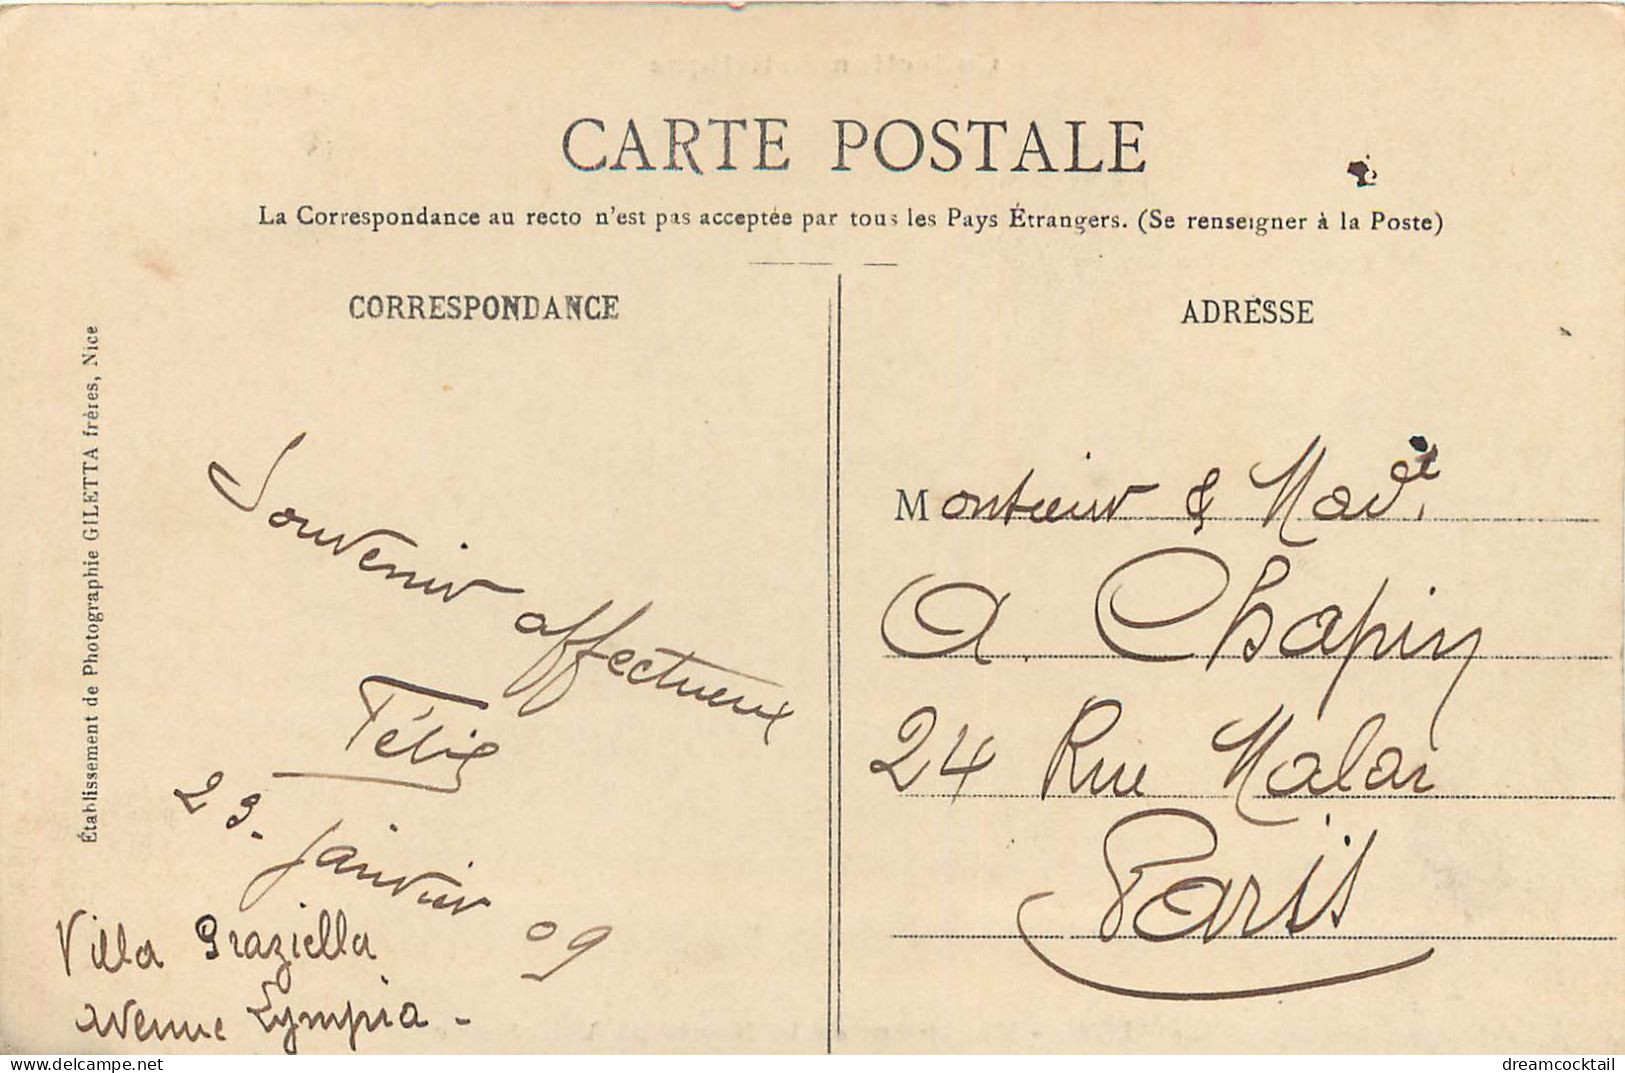 CARTE POSTALE
La Correspondance au recto n'est pas acceptée par tous les Pays Étrangers. (Se renseigner à la Poste)
CORRESPONDANCE
ADRESSE
Établissement de Photographie GILETTA frères, Nice
Souvenir affectueux
23. janvier 09
Villa Graziella
avenue Lympia -
Monsieur & Made
A. Chapin
24 Rue Malar
Paris
dreamcocktail